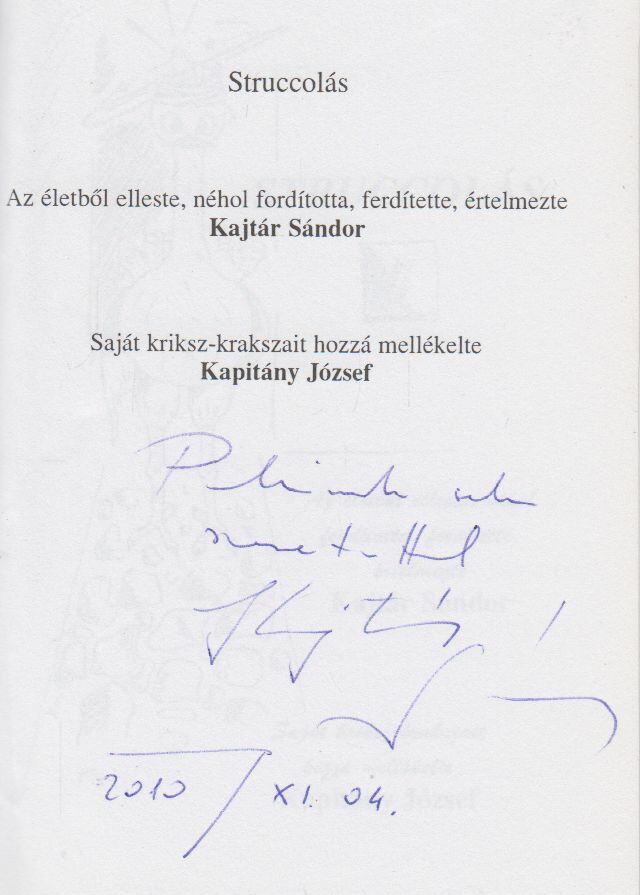 Struccolás
Az életből elleste, néhol fordította, ferdítette, értelmezte
Kajtár Sándor
Saját kriksz-krakszait hozzá mellékelte
Kapitány József
szeretettel
2010 XI. 04.